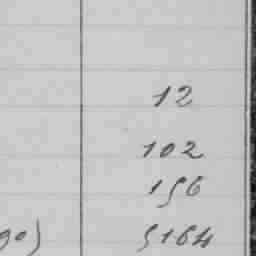 12
102
156
90) 5164